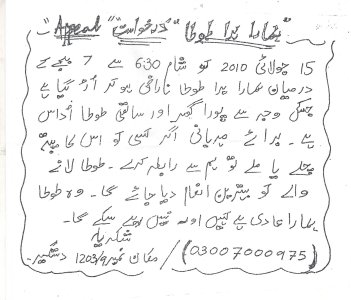 "ہمارا ہرا طوطا" "درخواست" "Appeal"
15 جولائی 2010 کو شام 6:30 سے 7 بجے کے
درمیان ہمارا ہرا طوطا ناراض ہو کر اڑ گیا ہے
جسکی وجہ سے پورا گھر اور ساتھی طوطا اداس
ہے۔ برائے مہربانی اگر کسی کو اس کا پتہ
چلے یا ملے تو ہم سے رابطہ کرے۔ طوطا لانے
والے کو بہترین انعام دیا جائے گا۔ وہ طوطا
ہمارا عادی ہے کہیں اور نہیں رہ سکے گا۔
شکریہ
(03007000975) / مکان نمبر 1203/9 دستگیر۔